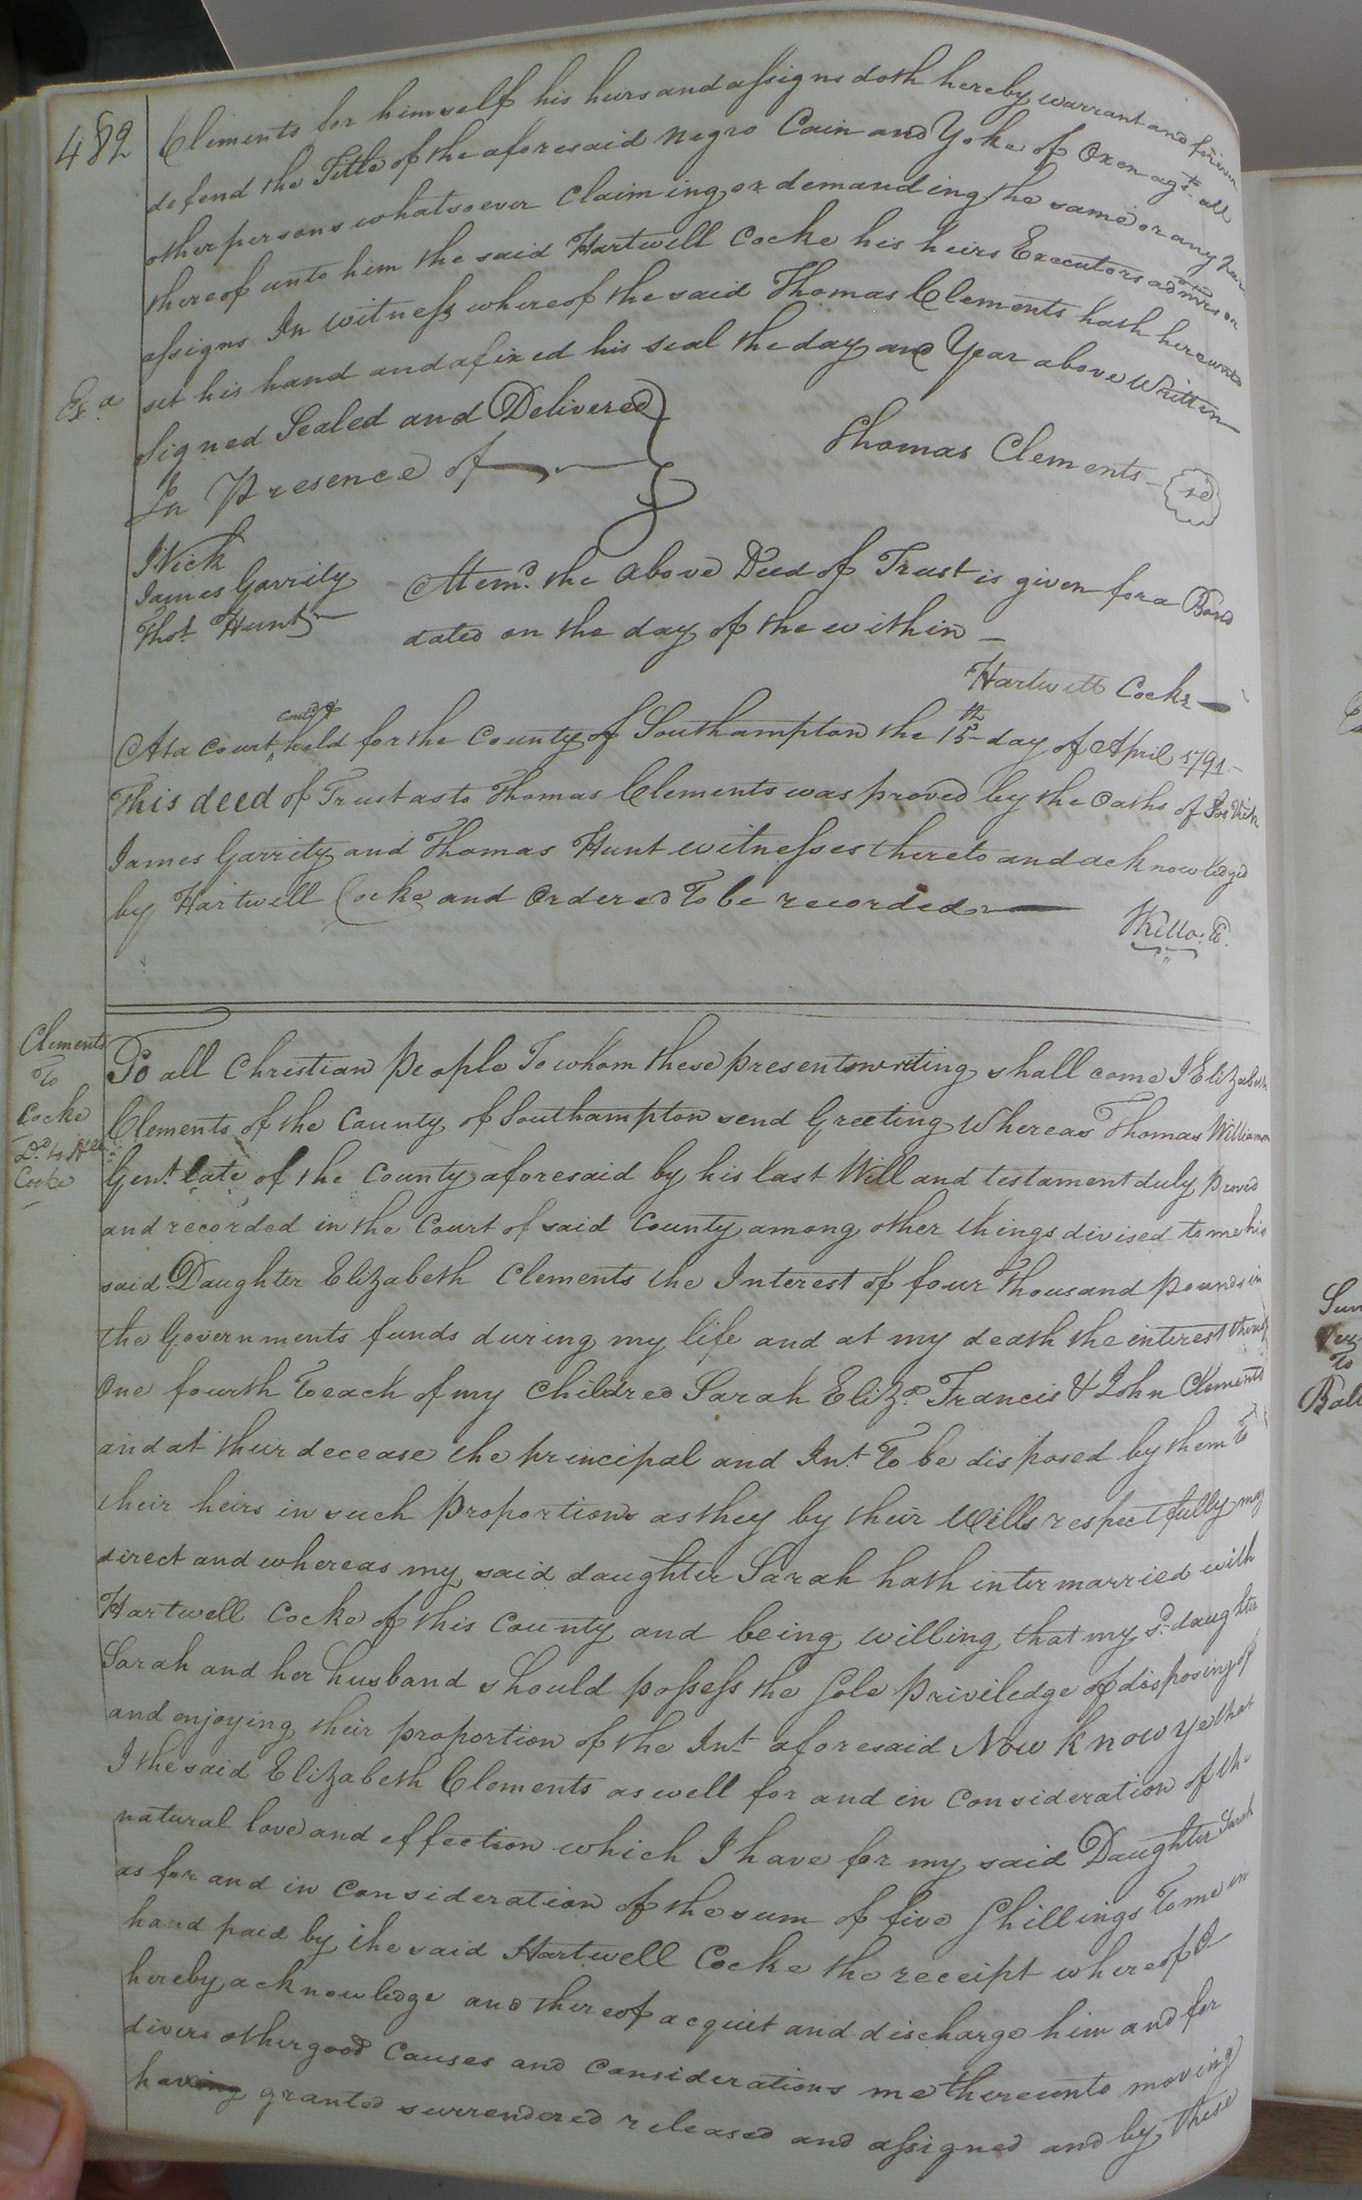 482
Clements for himself his heirs and assigns doth hereby warrant and forever
defend the Title of the aforesaid negro Cain and Yoke of Oxen agt. all
other persons whatsoever Claiming or demanding the same or any
thereof unto him the said Hartwell Cocke his heirs Executors admrs or
assigns In witness whereof the said Thomas Clements hath hereunto
Exa
set his hand and afixed his seal the day and Year above Written
Signed Sealed and Delivered
In Presence of
Thomas Clements Sd
J Vick
James Garrity
Thos. Hunt
Memd. the above Deed of Trust is given for a Bond
dated on the day of the within
Hartwell Cocke
At a Court contd & held for the County of Southampton the 15th day of April 1791
This deed of Trust as to Thomas Clements was proved by the Oaths of Jos Vick
James Garrity and Thomas Hunt witnesses thereto and acknowledged
by Hartwell Cocke and Ordered To be recorded
Clements
To
Cocke
Dd. to
Cocke
To all Christian People To whom these present writing shall come I Elizabeth
Clements of the County of Southampton send Greeting Whereas Thomas Williamson
Gent. late of the County aforesaid by his last Will and testament duly proved
and recorded in the Court of said County among other things divised to me his
said Daughter Elizabeth Clements the Interest of four Thousand pounds in
the Governments funds during my life and at my death the interest thereof
One fourth To each of my Children Sarah Eliza. Francis & John Clements
and at their decease the principal and Int. To be disposed by them To
their heirs in such proportions as they by their Wills respectfully may
direct and whereas my said daughter Sarah hath intermarried with
Hartwell Cocke of this County and being willing that my sd. daughter
Sarah and her husband should possess the sole priviledge of disposing of
and enjoying their proportion of the Int. aforesaid Now know ye that
I the said Elizabeth Clements as well for and in Consideration of the
natural love and effection which I have for my said Daughter Sarah
as for and in Consideration of the sum of five Shillings To me in
hand paid by the said Hartwell Cocke the receipt whereof I
hereby acknowledge and thereof acquit and discharge him and for
divers other good Causes and Considerations me thereunto moving
having granted surrendered released and assigned and by these
Sum
To